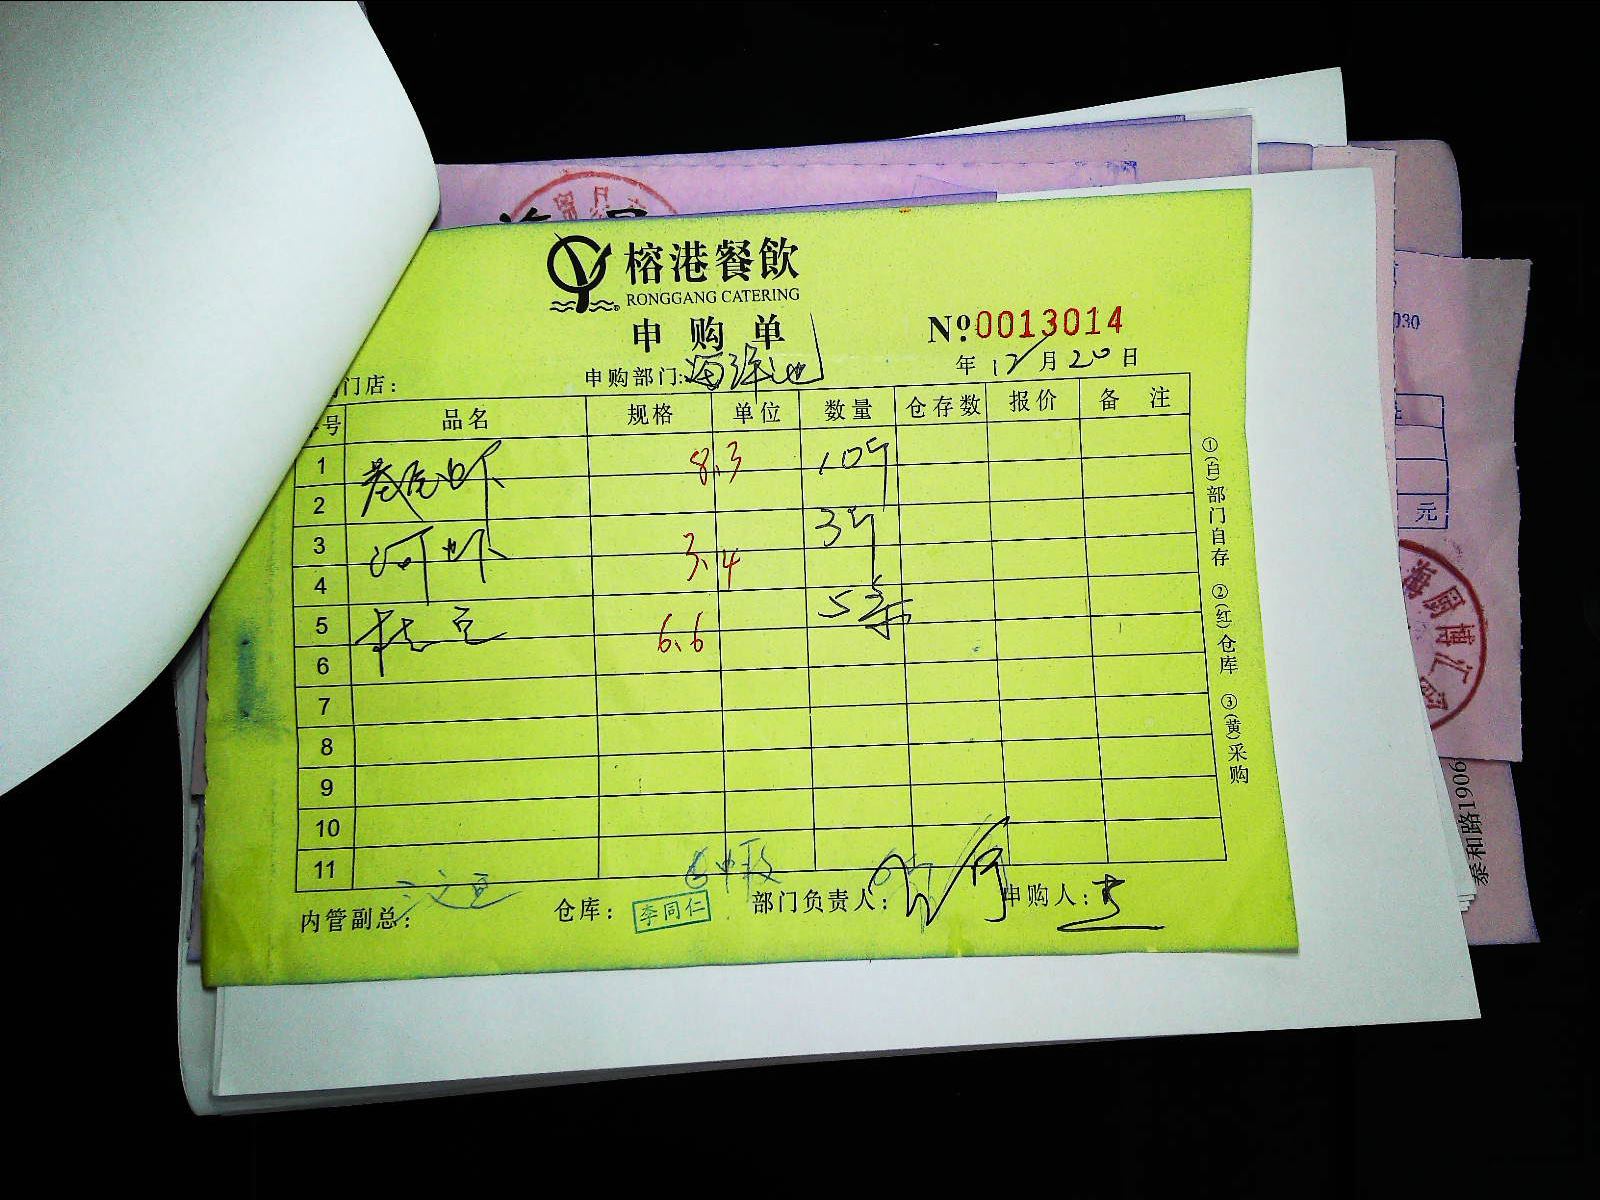 榕港餐飲
RONGGANG CATERING
申购单
Nº0013014
门店： 申购部门:海鲜池 年 12月20日
号 品名 规格 单位 数量 仓存数 报价 备注
1 基尾虾 8.3 10斤
2
3 河虾 3.4 3斤
4
5 6.6 5条
6
7
8
9
10
11
内管副总： 仓库： 李同仁 部门负责人： 申购人：
①(白)部门自存 ②(红)仓库 ③(黄)采购
030
元
泰和路1906